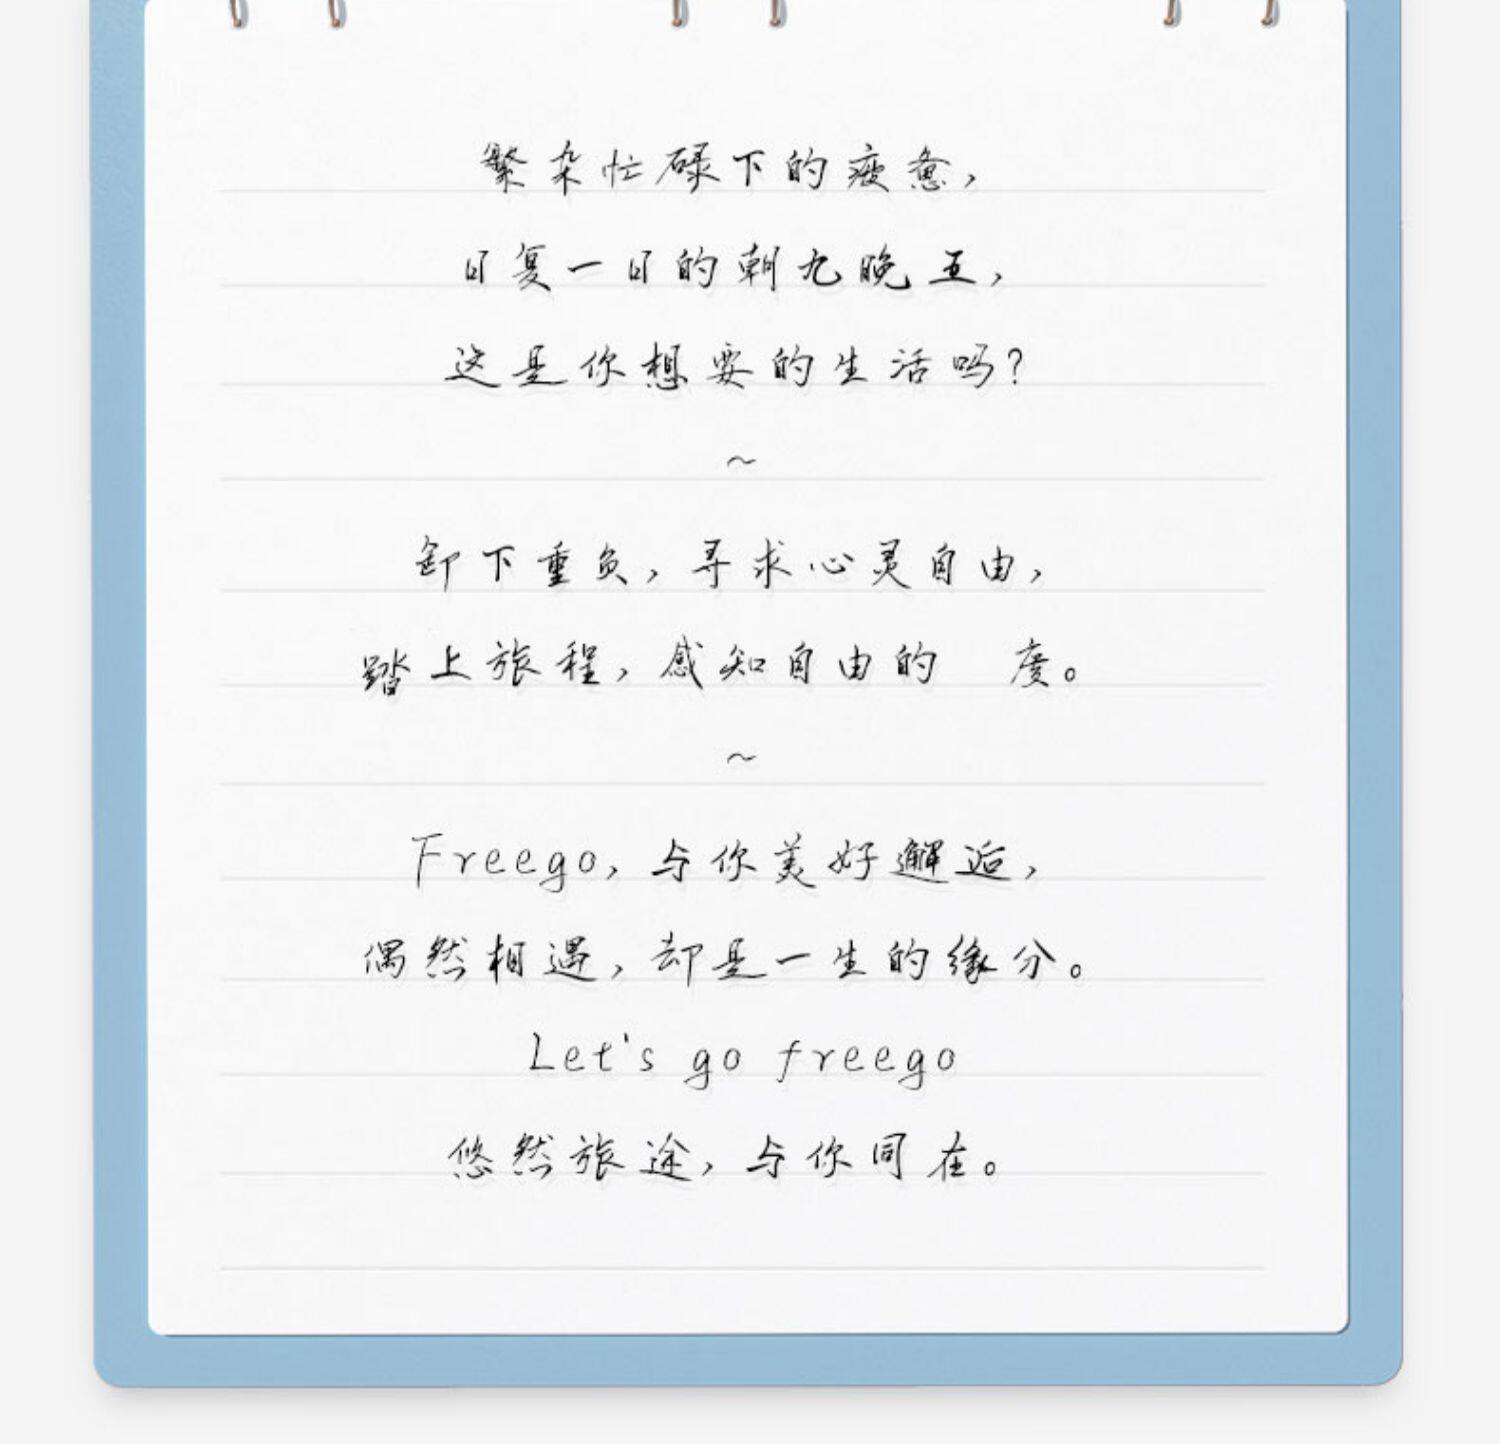 繁杂忙碌下的疲惫，
日复一日的朝九晚五，
这是你想要的生活吗？
~
卸下重负，寻求心灵自由，
踏上旅程，感知自由的　度。
~
Freego，与你美好邂逅，
偶然相遇，却是一生的缘分。
Let's go freego
悠然旅途，与你同在。